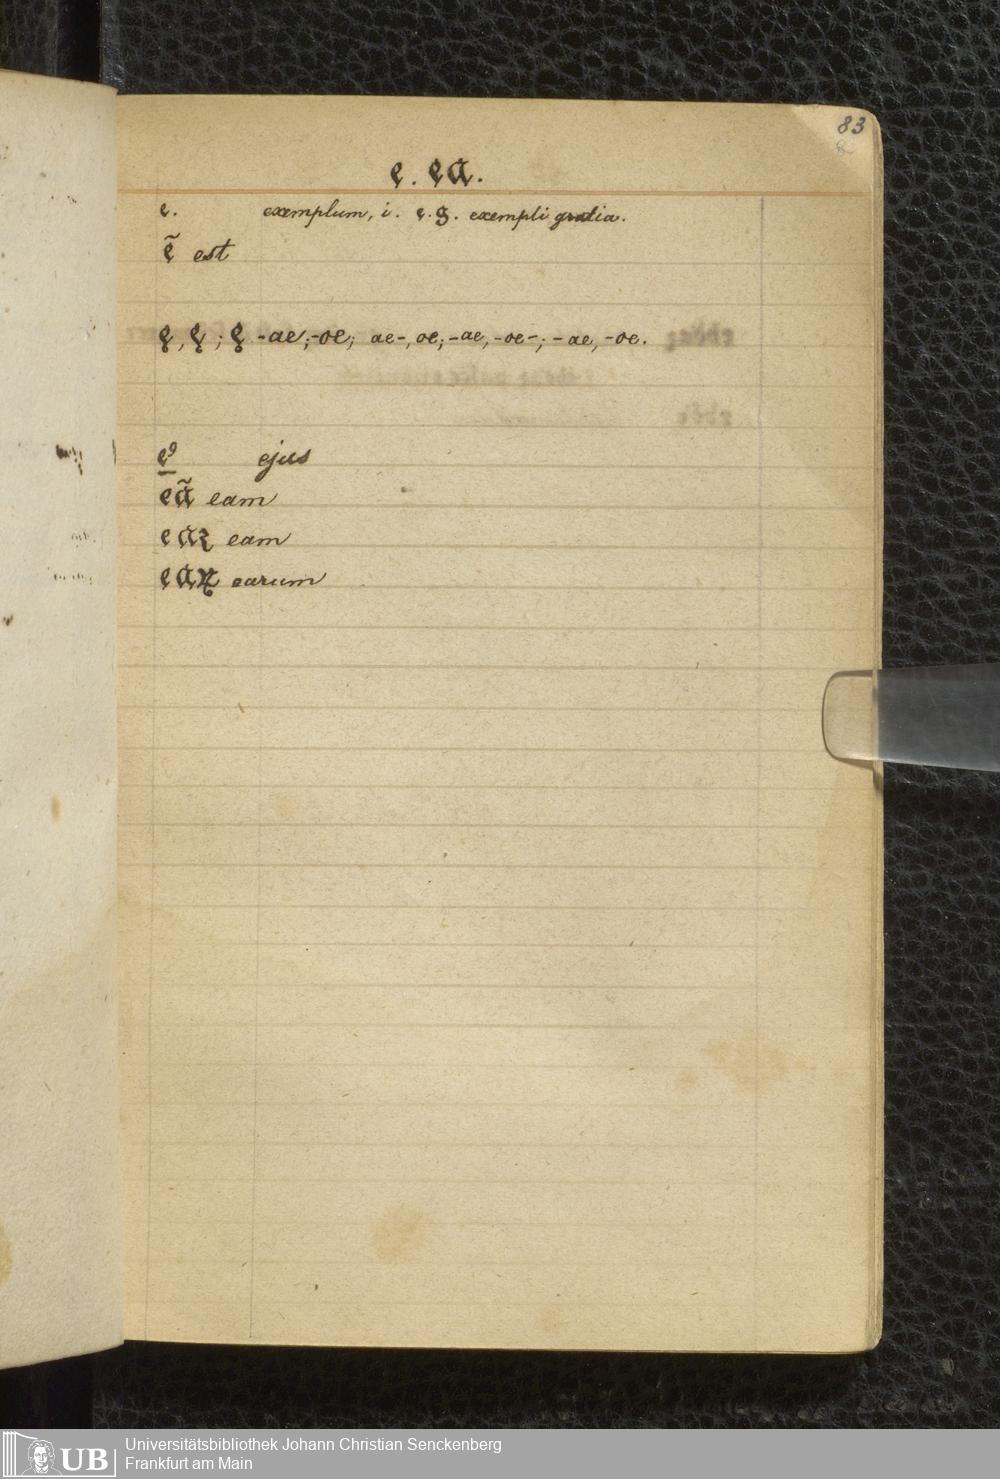 83
e. ea.
e. exemplum, i. e. g. exempli gratia.
ẽ est
ę, ę; ę -ae; -oe; ae-, oe; -ae, -oe-; - ae, -oe.
eꝰ ejus
eã eam
eaꝛ eam
eaꝝ earum
UB
Universitätsbibliothek Johann Christian Senckenberg
Frankfurt am Main